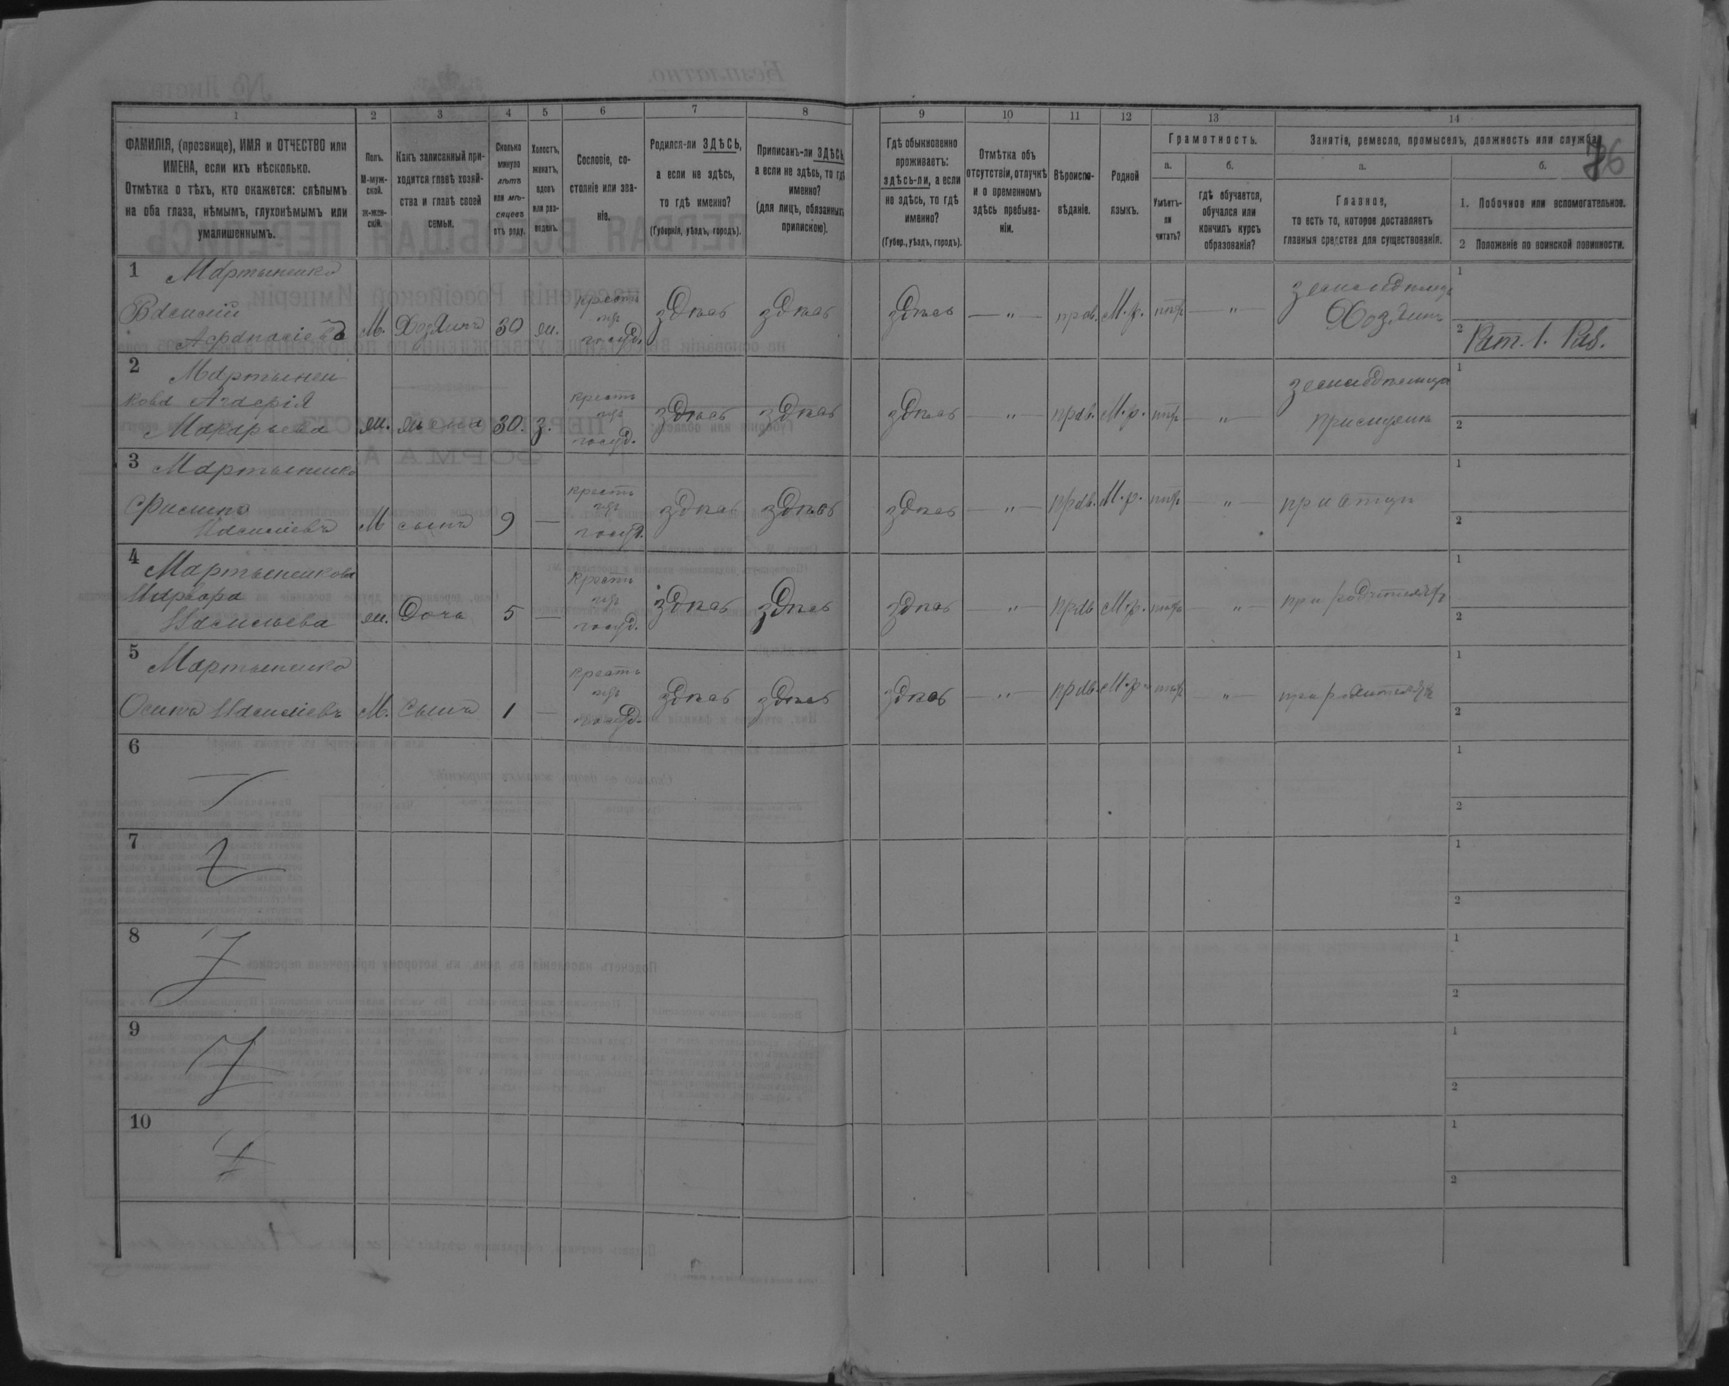 1 2 3 4 5 6 7 8 9 10 11 12 13 14
ФАМИЛІЯ, (прозвище), ИМЯ и ОТЧЕСТВО или
ИМЕНА, если ихъ нѣсколько.
Отмѣтка о тѣхъ, кто окажется: слѣпымъ
на оба глаза, нѣмымъ, глухонѣмымъ или
умалишеннымъ.
Полъ.
М-муж-
ской.
Ж-жен-
скій.
Какъ записанный при-
ходится главѣ хозяй-
ства и главѣ своей
семьи.
Сколько
минуло
лѣтъ
или мѣ-
сяцевъ
отъ роду.
Холостъ,
женатъ,
вдовъ
или раз-
веденъ.
Сословіе, со-
стояніе или зва-
ніе.
Родился-ли ЗДѢСЬ,
а если не здѣсь,
то гдѣ именно?
(Губернія, уѣздъ, городъ).
Приписанъ-ли ЗДѢСЬ,
а если не здѣсь, то гдѣ
именно?
(для лицъ, обязанныхъ
припискою).
Гдѣ обыкновенно
проживаетъ:
здѣсь-ли, а если
не здѣсь, то гдѣ
именно?
(Губер., уѣздъ, городъ).
Отмѣтка объ
отсутствіи, отлучкѣ
и о временномъ
здѣсь пребыва-
ніи.
Вѣроиспо-
вѣданіе.
Родной
языкъ.
Грамотность.
а.
Умѣетъ-
ли
читать?
б.
гдѣ обучается,
обучался или
кончилъ курсъ
образованія?
Занятіе, ремесло, промыселъ, должность или служба.
а.
Главное,
то есть то, которое доставляетъ
главныя средства для существованія.
б.
1. Побочное или вспомогательное.
2 Положеніе по воинской повинности.
1 Мартыненко
Василій
Афанасіевъ
М. Хозяинъ 30 ж. крестъ
изъ
госуд.
здѣсь здѣсь здѣсь — „ — прав. М.р. — „ —
Хозяинъ
1
2 Рат. 1. Раз.
2 Мартынен
кова
Макарьева
ж. жена 30. з. крестъ
изъ
госуд.
здѣсь здѣсь здѣсь — „ — прав. М.р. — „ —
1
2
3 Мартыненко
Филипъ
Васильевъ
М сынъ 9 — крестъ
изъ
госуд.
здѣсь здѣсь здѣсь — „ — прав. М.р. — „ —
1
2
4 Мартыненкова
Варвара
Васильева
ж. дочь 5 — крестъ
изъ
госуд.
здѣсь здѣсь здѣсь — „ — прав М.р. — „ —
при родителяхъ
1
2
5 Мартыненко
Осипъ Васильевъ
М. сынъ 1 — крестъ
изъ
госуд.
здѣсь здѣсь здѣсь — „ — прав. М.р. — „ —
при родителяхъ
1
2
6
1
2
7
1
2
8
1
2
9
1
2
10
1
2